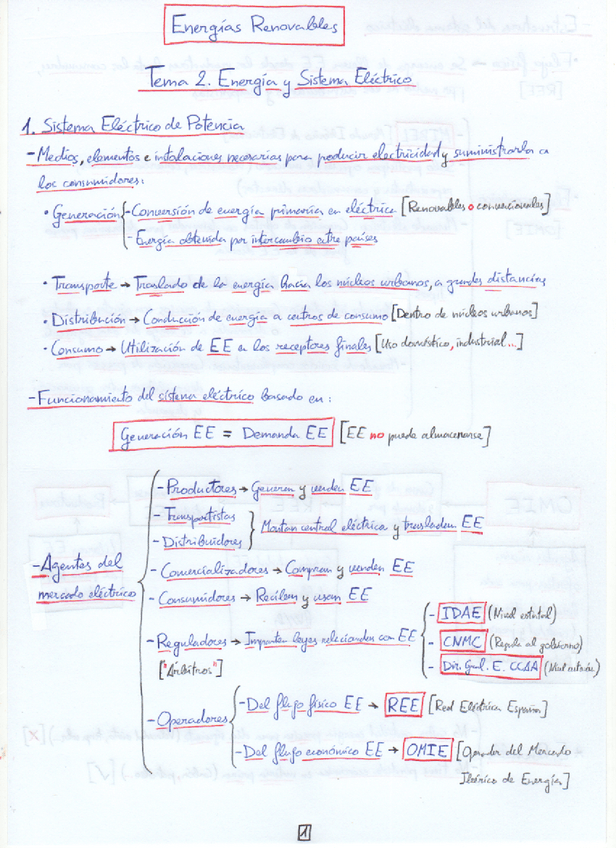 Energías Renovables
Tema 2. Energía y Sistema Eléctrico
1. Sistema Eléctrico de Potencia
- Medios, elementos e instalaciones necesarias para producir electricidad y suministrarla a
los consumidores:
• Generación - Conversión de energía primaria en eléctrica [Renovables o convencionales]
- Energía obtenida por intercambio entre países
• Transporte → Traslado de la energía hacia los núcleos urbanos, a grandes distancias
• Distribución → Conducción de energía a centros de consumo [Dentro de núcleos urbanos]
• Consumo → Utilización de EE en los receptores finales [Uso doméstico, industrial...]
- Funcionamiento del sistema eléctrico basado en:
Generación EE = Demanda EE [EE no puede almacenarse]
- Agentes del
mercado eléctrico
- Productores → Generan y venden EE
- Transportistas
- Distribuidores
Montan central eléctrica y trasladan EE
- Comercializadores → Compran y venden EE
- Consumidores → Reciben y usan EE
- Reguladores → Imparten leyes relacionadas con EE
["Árbitros"]
- IDAE (Nivel estatal)
- CNMC (Regula al gobierno)
- Dir. Gral. E. CCAA
- Operadores
- Del flujo físico EE → REE [Red Eléctrica Española]
- Del flujo económico EE → OMIE [Operador del Mercado
Ibérico de Energía]
1